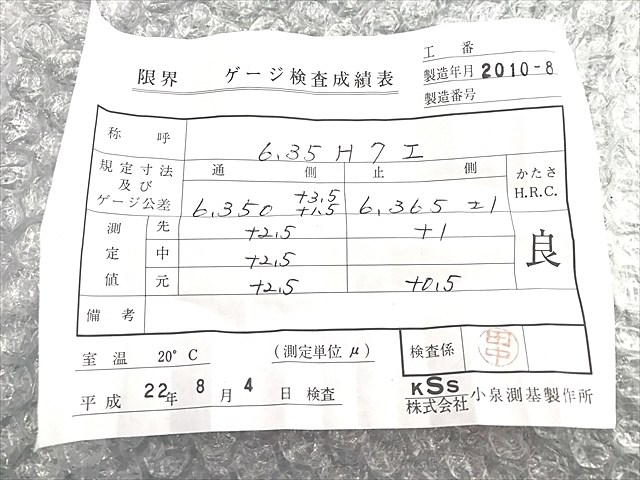 工番
限界 ゲージ検査成績表
製造年月 2010-8
製造番号
称呼 6.35 H 7 エ
規定寸法及びゲージ公差 通側 止側 かたさ H.R.C.
6.350 +3.5 +1.5 6.365 ±1
測定値 先 +2.5 +1 良
中 +2.5
元 +2.5 +0.5
備考
室温 20°C (測定単位μ) 検査係 田中
平成 22年 8月 4日 検査
KSS
株式会社 小泉測基製作所